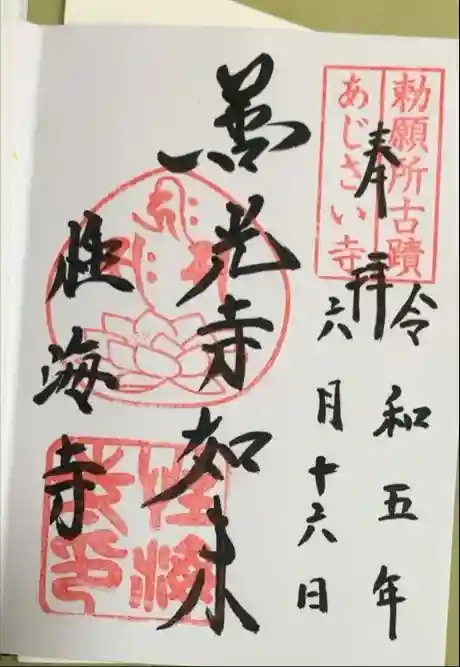 勅願所古蹟
あじさい寺
奉拝
令和五年
六月十六日
善光寺如来
性海寺